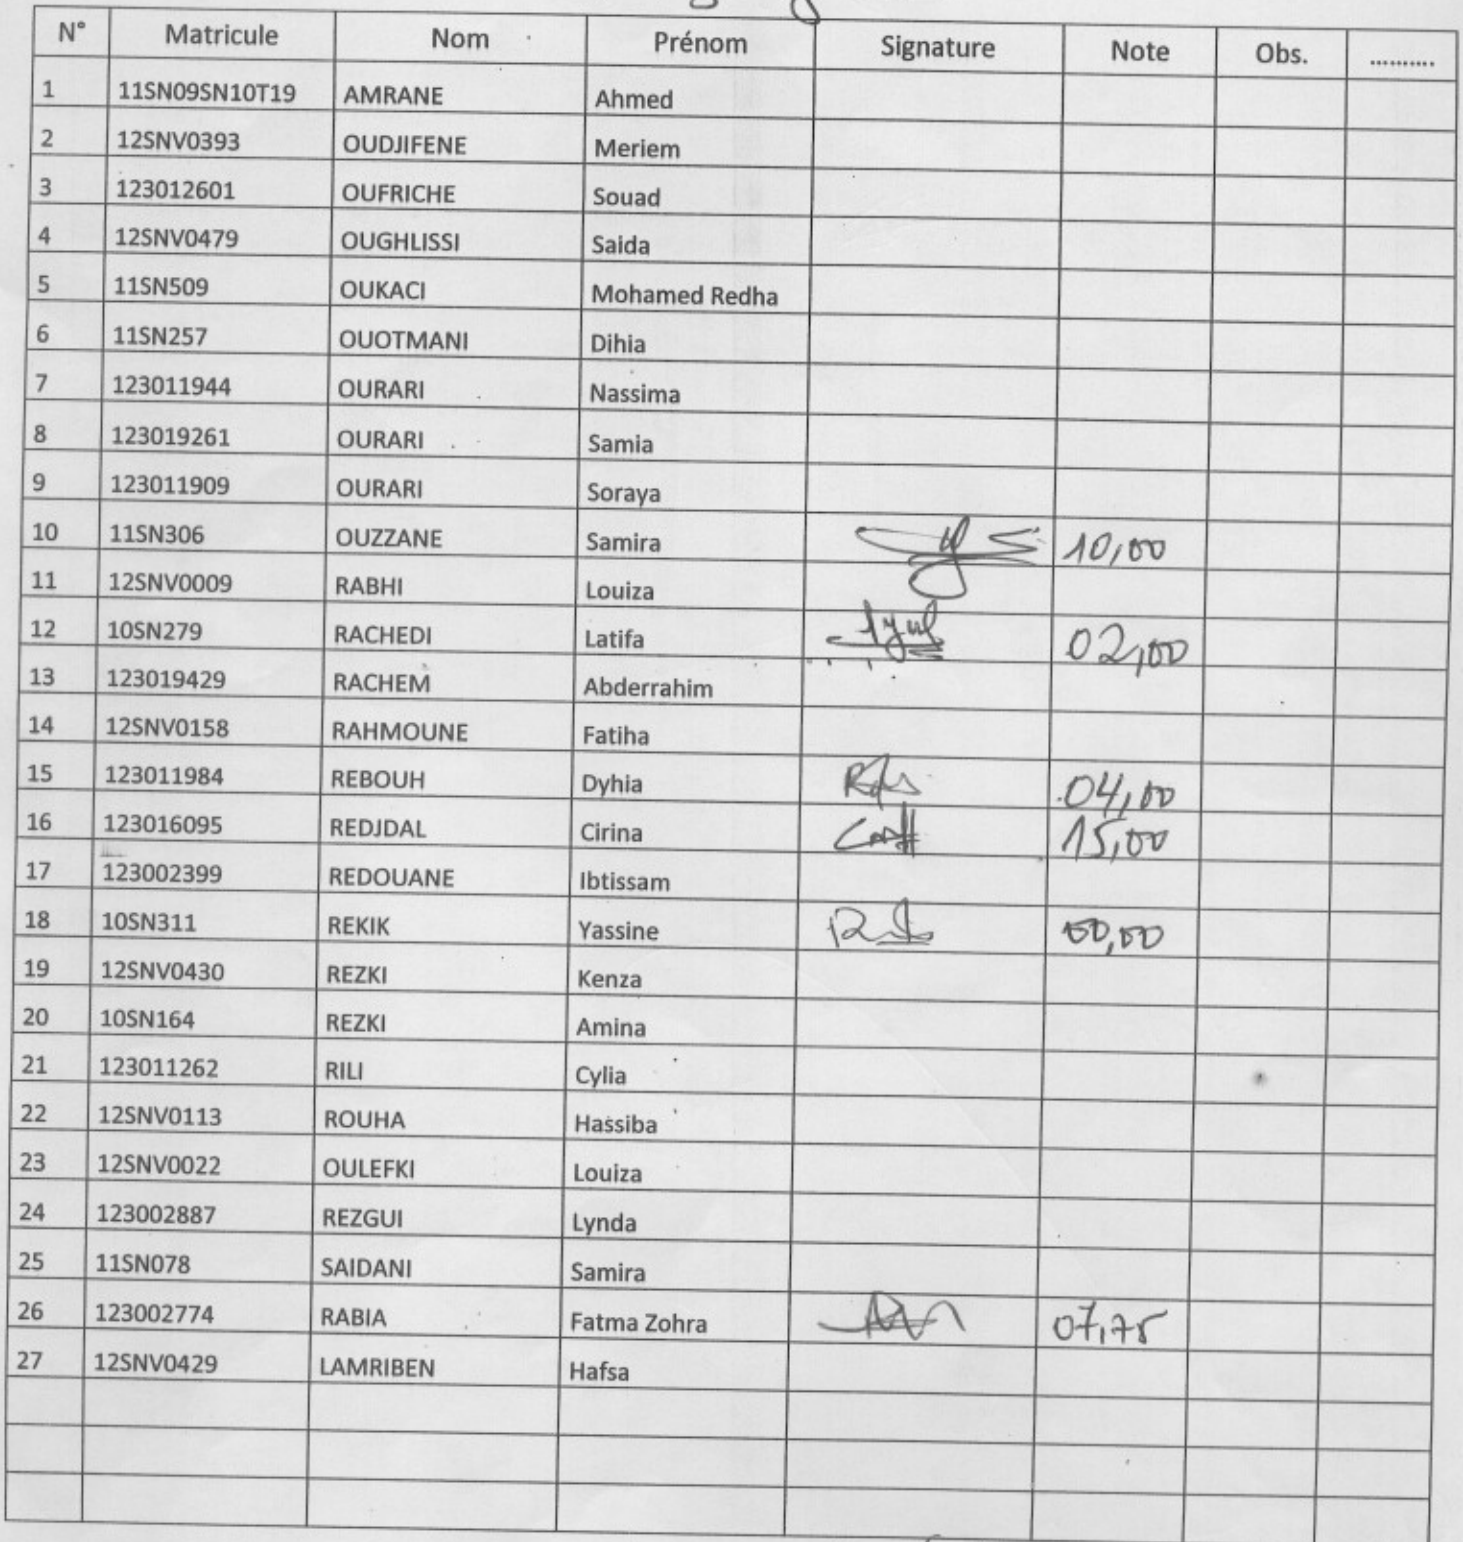 N° Matricule Nom Prénom Signature Note Obs. ..........
1 11SN09SN10T19 AMRANE Ahmed
2 12SNV0393 OUDJIFENE Meriem
3 123012601 OUFRICHE Souad
4 12SNV0479 OUGHLISSI Saida
5 11SN509 OUKACI Mohamed Redha
6 11SN257 OUOTMANI Dihia
7 123011944 OURARI Nassima
8 123019261 OURARI Samia
9 123011909 OURARI Soraya
10 11SN306 OUZZANE Samira 10,00
11 12SNV0009 RABHI Louiza
12 10SN279 RACHEDI Latifa 02,00
13 123019429 RACHEM Abderrahim
14 12SNV0158 RAHMOUNE Fatiha
15 123011984 REBOUH Dyhia 04,00
16 123016095 REDJDAL Cirina 15,00
17 123002399 REDOUANE Ibtissam
18 10SN311 REKIK Yassine 00,00
19 12SNV0430 REZKI Kenza
20 10SN164 REZKI Amina
21 123011262 RILI Cylia
22 12SNV0113 ROUHA Hassiba
23 12SNV0022 OULEFKI Louiza
24 123002887 REZGUI Lynda
25 11SN078 SAIDANI Samira
26 123002774 RABIA Fatma Zohra 07,75
27 12SNV0429 LAMRIBEN Hafsa